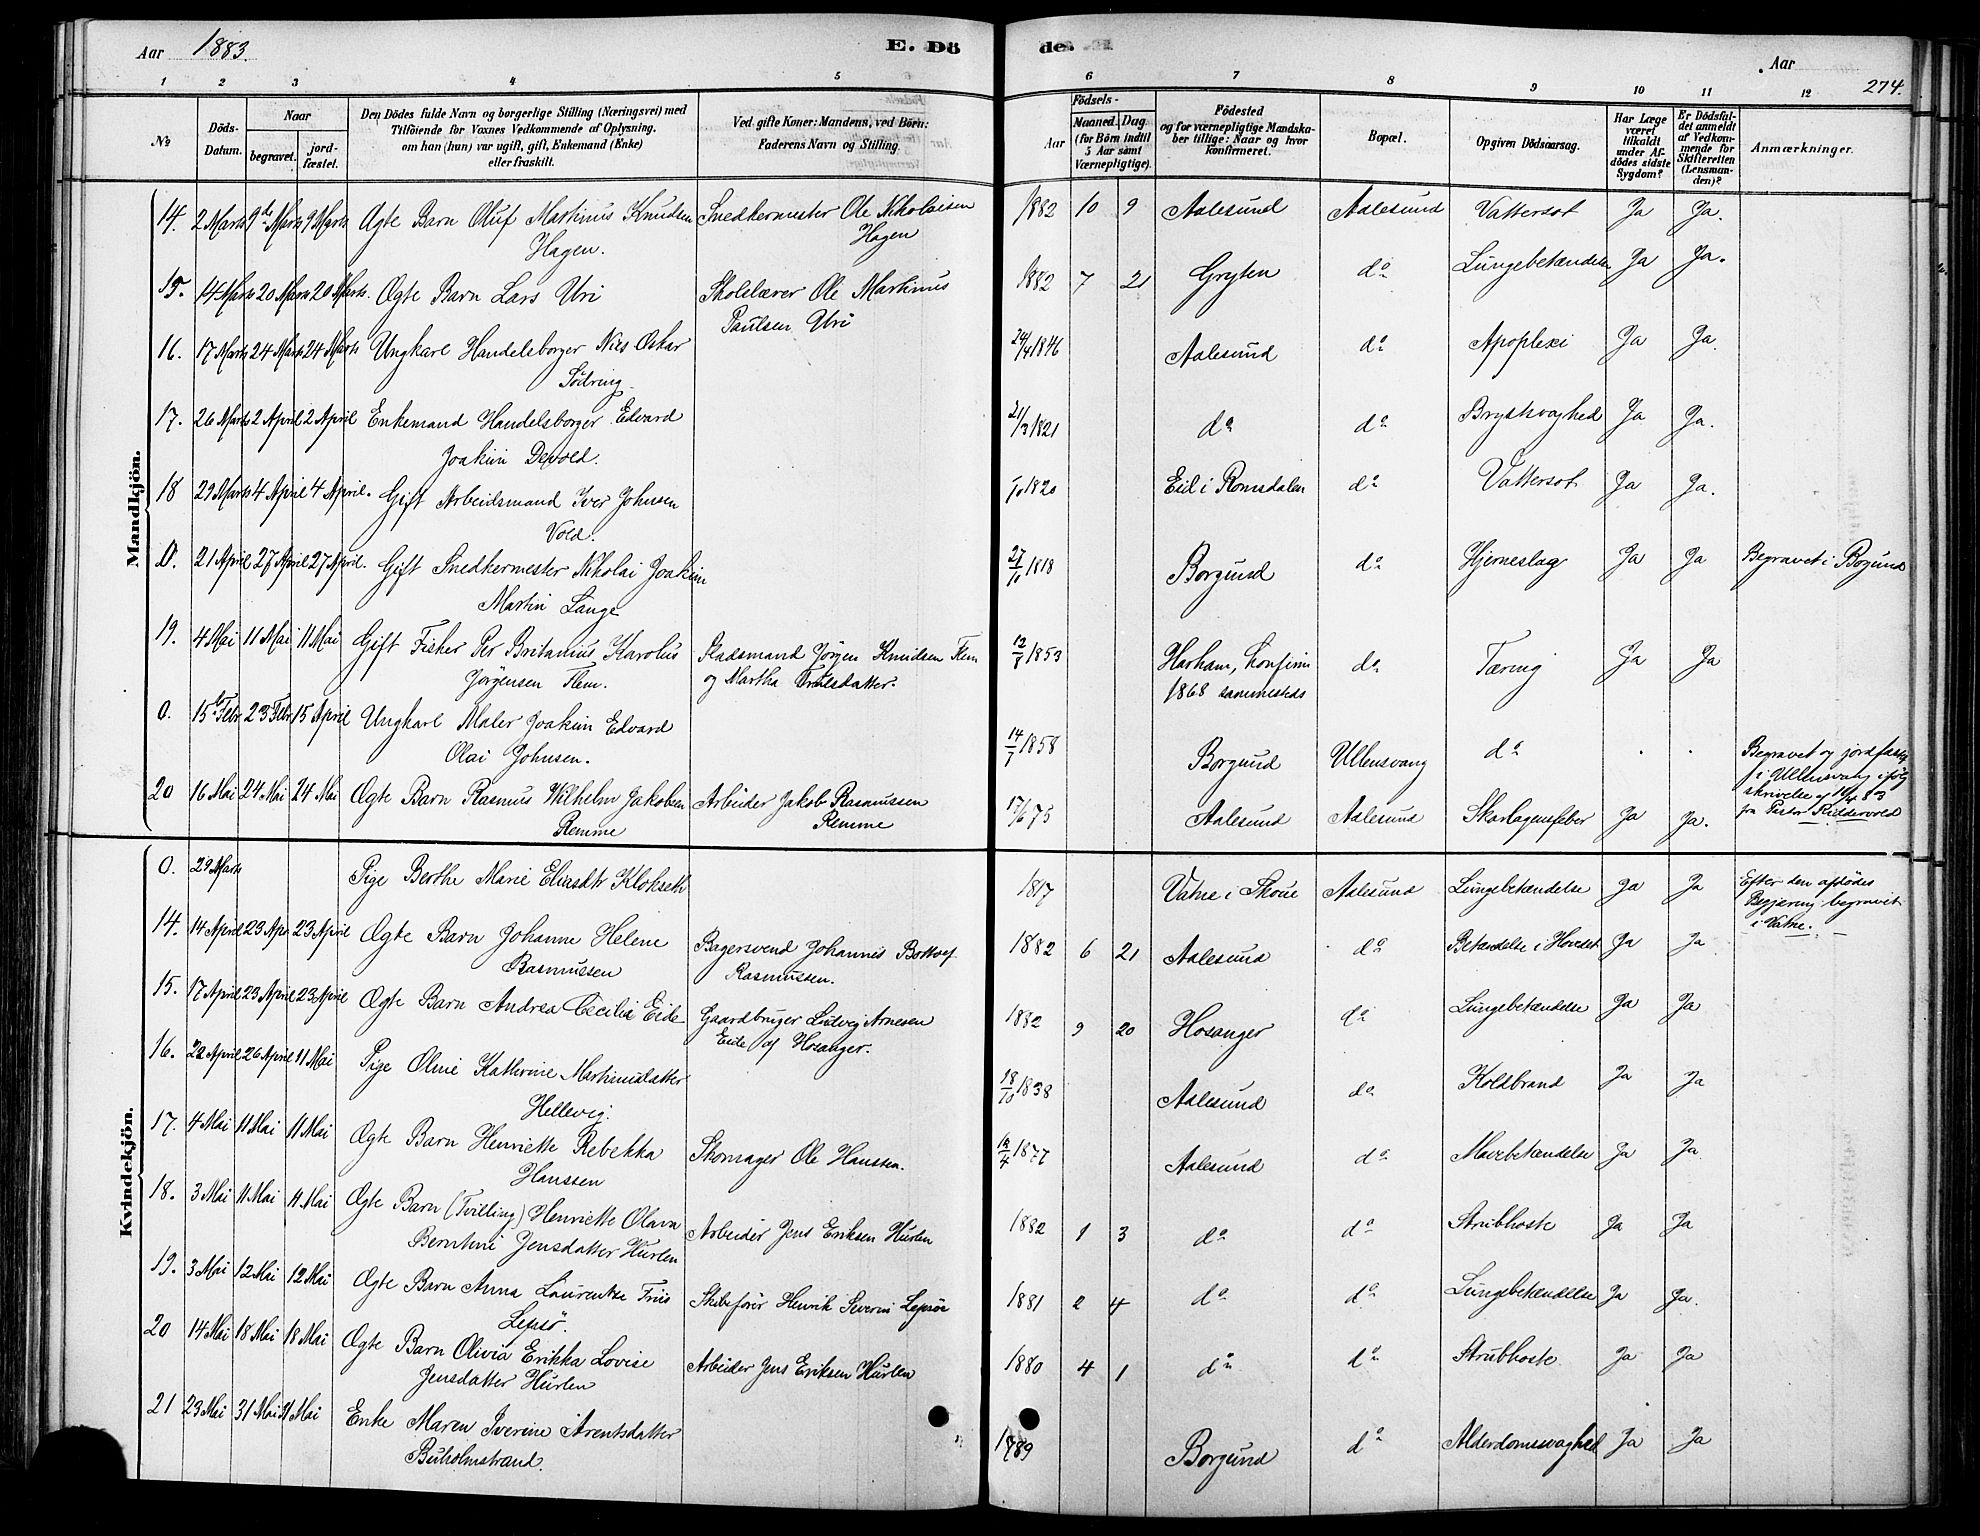 Aar 1883.
E. Dö
de.
Aar
274.
1 2 3 4 5 6 7 8 9 10 11 12
№
Döds-Datum.
Naar
begravet. jordfæstet.
Den Dödes fulde Navn og borgerlige Stilling (Næringsvei) med
Tilföiende for Voxnes Vedkommende af Oplysning,
om han (hun) var ugift, gift, Enkemand (Enke)
eller fraskilt.
Ved gifte Koner: Mandens, ved Börn:
Faderens Navn og Stilling.
Födsels-
Aar Maaned. Dag
(for Börn indtil
5 Aar samt
Værnepligtige).
Födested
og for værnepligtige Mandska-
ber tillige: Naar og hvor
konfirmeret.
Bopæl.
Opgiven Dödsaarsag.
Har Læge
været
tilkaldt
under Af-
dödes sidste
Sygdom?
Er Dödsfal-
det anmeldt
af Vedkom-
mende for
Skifteretten
(Lensman-
den)?
Anmærkninger.
Mandkjön.
14. 2 Marts 9de Marts 9 Marts Ægte Barn Oluf Martinus Knudsen Snedkermester Ole Nikolaisen 1882 10 9 Aalesund Aalesund Vattersot Ja Ja.
Hagen. Hagen
15. 14 Marts 20 Marts 20 Marts. Ægte Barn Lars Uri Skolelærer Ole Martinus 1882 7 21 Gryten do Lungebetændelse Ja Ja.
Paulsen Uri
16. 17 Marts 24 Marts 24 Marts Ungkarl Handelsborger Nils Oskar 24/4 1846 Aalesund do Apoplexi Ja Ja.
Södring.
17. 26 Marts 2 April 2 April Enkemand Handelsborger Edvard 21/3 1821 do do Brystsvaghed Ja Ja.
Joakim Devold.
18 29 Marts 4 April 4 April. Gift Arbeidsmand Iver Johnsen /10 1820 Eid i Romsdalen do Vattersot Ja Ja.
Vold.
0. 21 April 27 April 27 April. Gift Snedkermester Nikolai Joakim 27/10 1818 Borgund do Hjerneslag Ja Ja Begravet i Borgund
Martin Lange
19. 4 Mai 11 Mai 11 Mai Gift Fisker Per Britanius Karolus Stadsmand Jørgen Knudsen Flem 12/8 1853 Harham, konfirm. do Tæring Ja Ja
Jørgensen Flem. og Martha 1868 sammesteds
0. 15de Febr 23 Febr 15 April Ungkarl Maler Joakim Edvard 14/7 1858 Borgund Ullensvang do . . Begravet og jordfæstet
Olai Johnsen. i Ullensvang ifølg
skrivelse af 10/4 83
fra Pastor Ridderveld
20 16 Mai 24 Mai 24 Mai Ægte Barn Rasmus Wilhelm Jakobsen Arbeider Jakob Rasmussen 17/6 75 Aalesund Aalesund Skarlagensfeber Ja Ja.
Remme Remme
Kvindekjön.
0. 29 Marts Pige Berthe Marie Eliasdtr Klokseth 1817 Vatne i Skoue Aalesund Lungebetændelse Ja Ja Efter den afdødes
Begjæring begravet
i Vatne.
14. 14 April 23 Apr. 23 April Ægte Barn Johanne Helene Bagersvend Johannes 1882 6 21 Aalesund do Betændelse i Hovedet Ja Ja
Rasmussen Rasmussen.
15. 17 April 23 April 23 April Ægte Barn Andrea Cecilia Eide Gaardbruger Ludvig Arnesen 1882 9 20 Hosanger do Lungebetændelse Ja Ja
Eide af Hosanger.
16. 22 April 26 April 11 Mai Pige Oline Katherine Martinusdatter 18/10 1838 Aalesund do Koldbrand Ja Ja
Hellevig.
17. 4 Mai 11 Mai 11 Mai Ægte Barn Henriette Rebekka Skomager Ole Hanssen. 1877 Aalesund do Mavebetændelse Ja Ja.
Hanssen
18. 3 Mai 11 Mai 11 Mai Ægte Barn (Tvilling) Henriette Olava Arbeider Jens Eriksen Hurlen 1882 1 3 do do Strubhoste Ja Ja
Berntine Jensdatter Hurlen
19. 3 Mai 12 Mai 12 Mai Ægte Barn Anna Laurentze Friis Skibsfører Henrik Severin Lepsøe 1881 2 4 do do Lungebetændelse Ja Ja.
Lepsø.
20 14 Mai 18 Mai 18 Mai Ægte Barn Olivia Erikka Lovise Arbeider Jens Eriksen Hurlen 1880 4 1 do do Strubhoste Ja Ja
Jensdatter Hurlen
21 23 Mai 31 Mai 31 Mai Enke Maren Iverine Arentsdatter 1789 Borgund do Alderdomssvaghed Ja Ja
Buholmstrand.